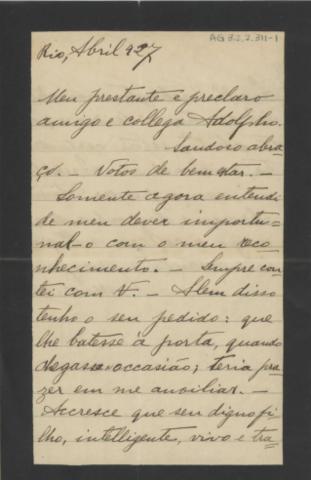 AG 3.2.2.311-1
Rio, Abril 927
Meu prestante e preclaro
amigo e collega Adolpho.
Saudoso abra-
ço. - Votos de bem estar. -
Somente agora entendi
de meu dever importu=
nal-o com o meu reco-
nhecimento. - Sempre con-
tei com V. - Alem disso
tenho o seu pedido: que
lhe batesse á porta, quando
chegasse occasião; teria pra-
zer em me auxiliar. -
Accresce que seu digno fi-
lho, intelligente, vivo e tra-